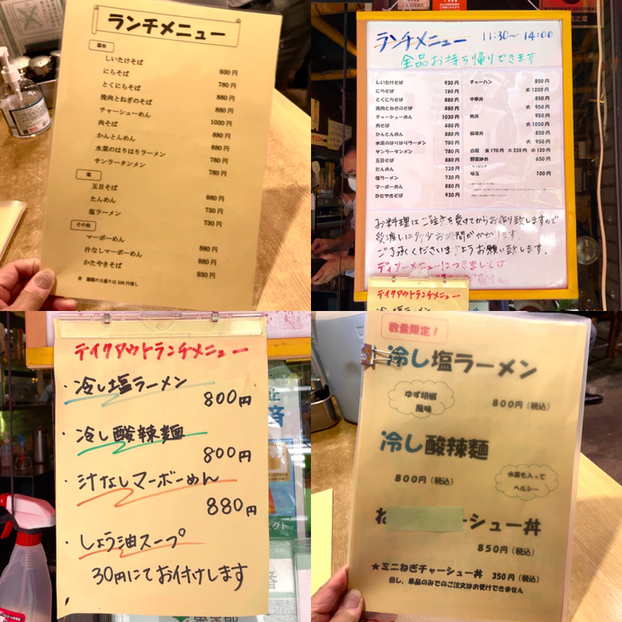 ランチメニュー
醤油
しいたけそば 930円
にらそば 780円
とくにらそば 880円
挽肉とねぎのそば 880円
チャーシューめん 1030円
肉そば 880円
かんとんめん 880円
水菜のはりはりラーメン 780円
サンラータンメン 780円
塩
五目そば 880円
たんめん 730円
塩ラーメン 730円
その他
マーボーめん 880円
汁なしマーボーめん 880円
かたやきそば 930円
※ 麺類の大盛りは100円増し
ランチメニュー 11:30~14:00
全品お持ち帰りできます
しいたけそば 930円
にらそば 780円
とくにらそば 880円
挽肉とねぎのそば 880円
チャーシューめん 1030円
肉そば 880円
かんとんめん 880円
水菜のはりはりラーメン 780円
サンラータンメン 780円
五目そば 880円
たんめん 730円
塩ラーメン 730円
マーボーめん 880円
かたやきそば 930円
チャーハン 850円
大 1200円
中華丼 850円
大 950円
肉丼 950円
大 1050円
麻婆丼 850円
大 950円
白飯 普170円 大220円 小120円
野菜炒め 650円
トッピング
味玉 100円
お料理はご注文を受けてからお作り致しますので
お渡しに多少お時間がかかります
ご了承くださいますようお願い致します。
テイクアウトランチメニュー
テイクアウトランチメニュー
・冷し塩ラーメン
800円
・冷し酸辣麺
800円
・汁なしマーボーめん
880円
・しょう油スープ
30円にてお付けします
数量限定!
冷し塩ラーメン
ゆず胡椒
風味
800円(税込)
冷し酸辣麺
800円(税込)
水菜も入って
ヘルシー
ね ーシュー丼
850円(税込)
★ミニねぎチャーシュー丼 350円(税込)
但し、単品のみでのご注文はお受けできません